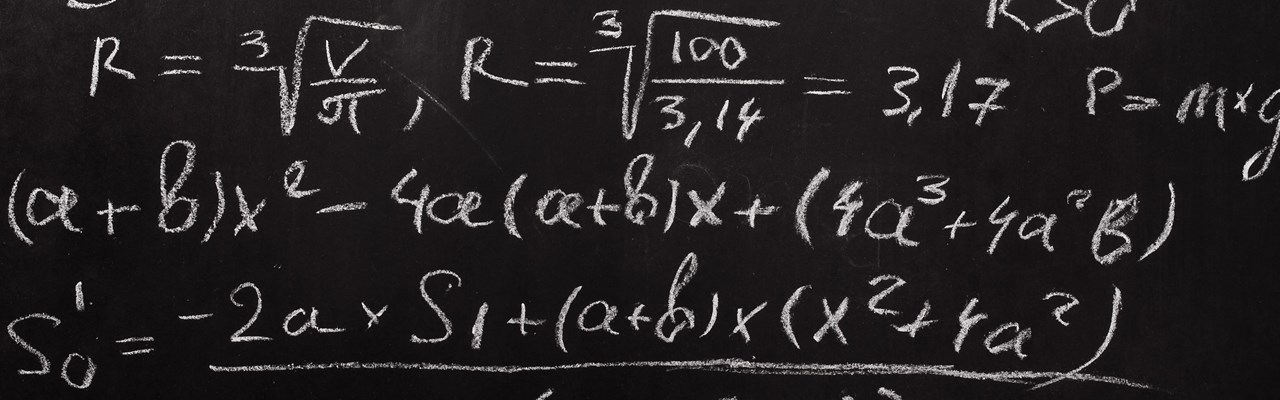 R>0
R = ∛(V/π), R = ∛(100/3,14) = 3,17 P = m×g
(a+b)x² - 4a(a+b)x + (4a³+4a²b)
S₀' = -2a × S₁ + (a+b) × (x²+4a²)